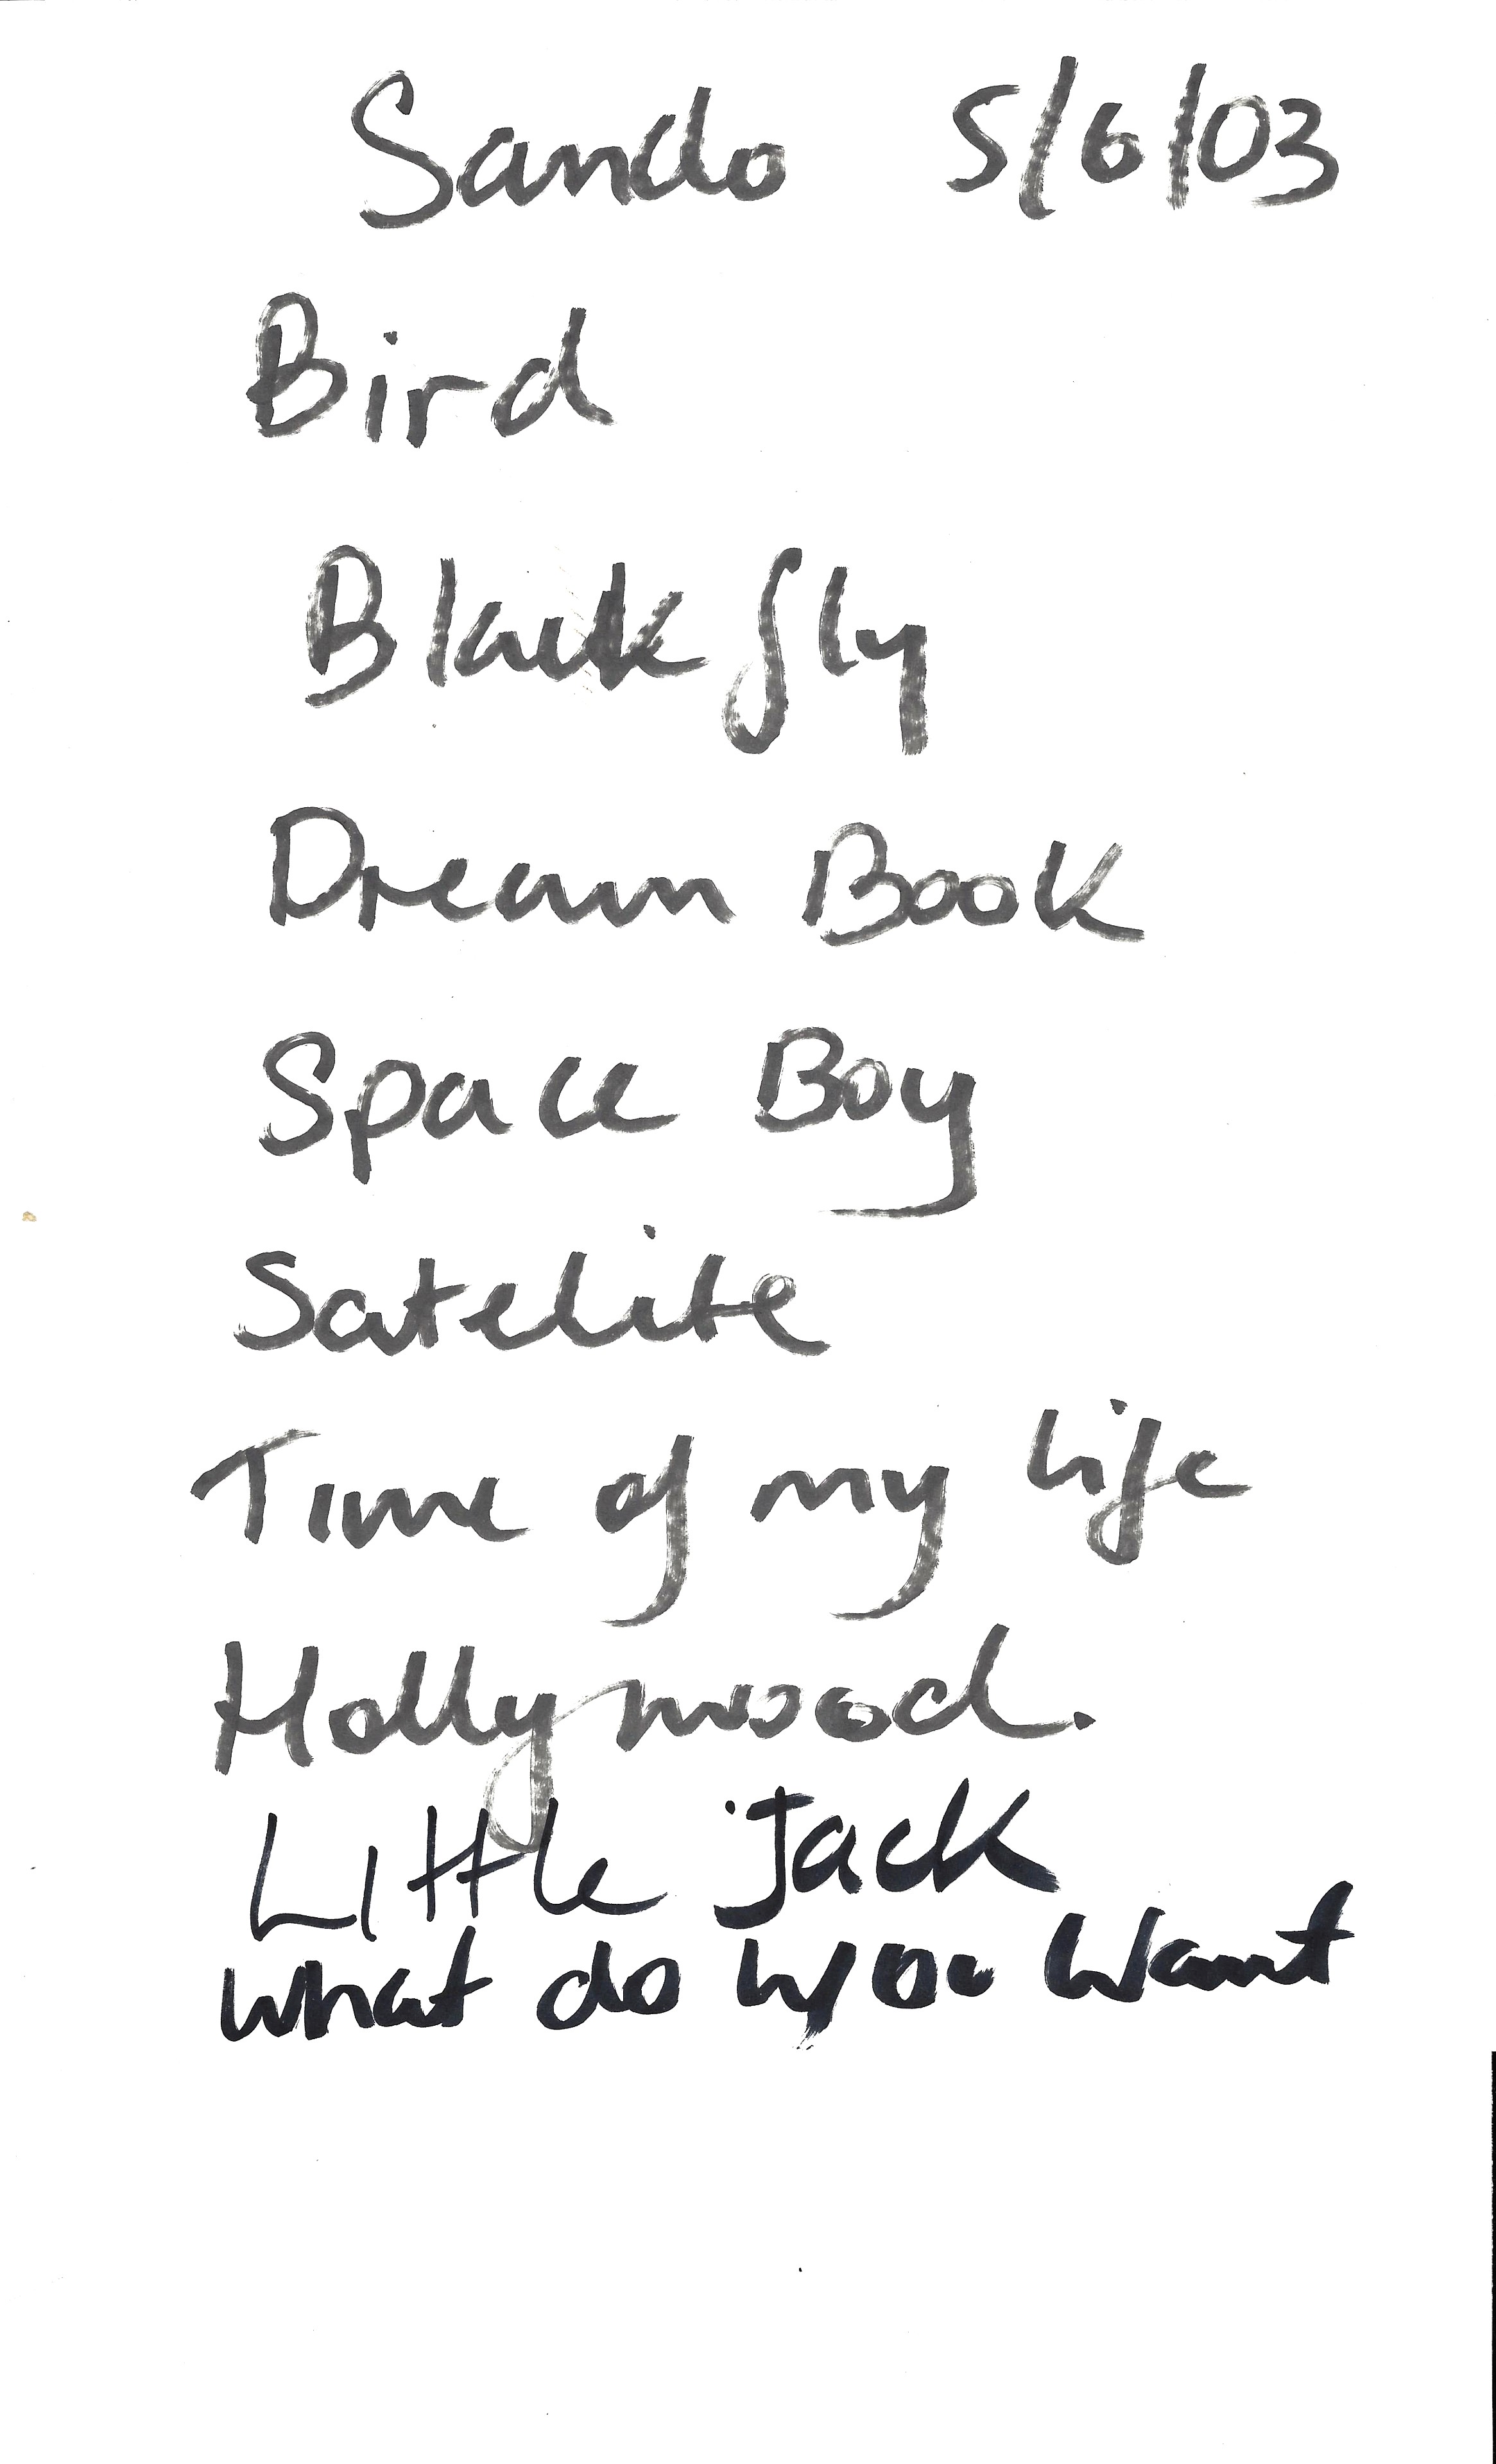 Sando 5/6/03
Bird
Black fly
Dream Book
Space Boy
Satelite
Time of my life
Hollywood.
Little Jack
what do you want